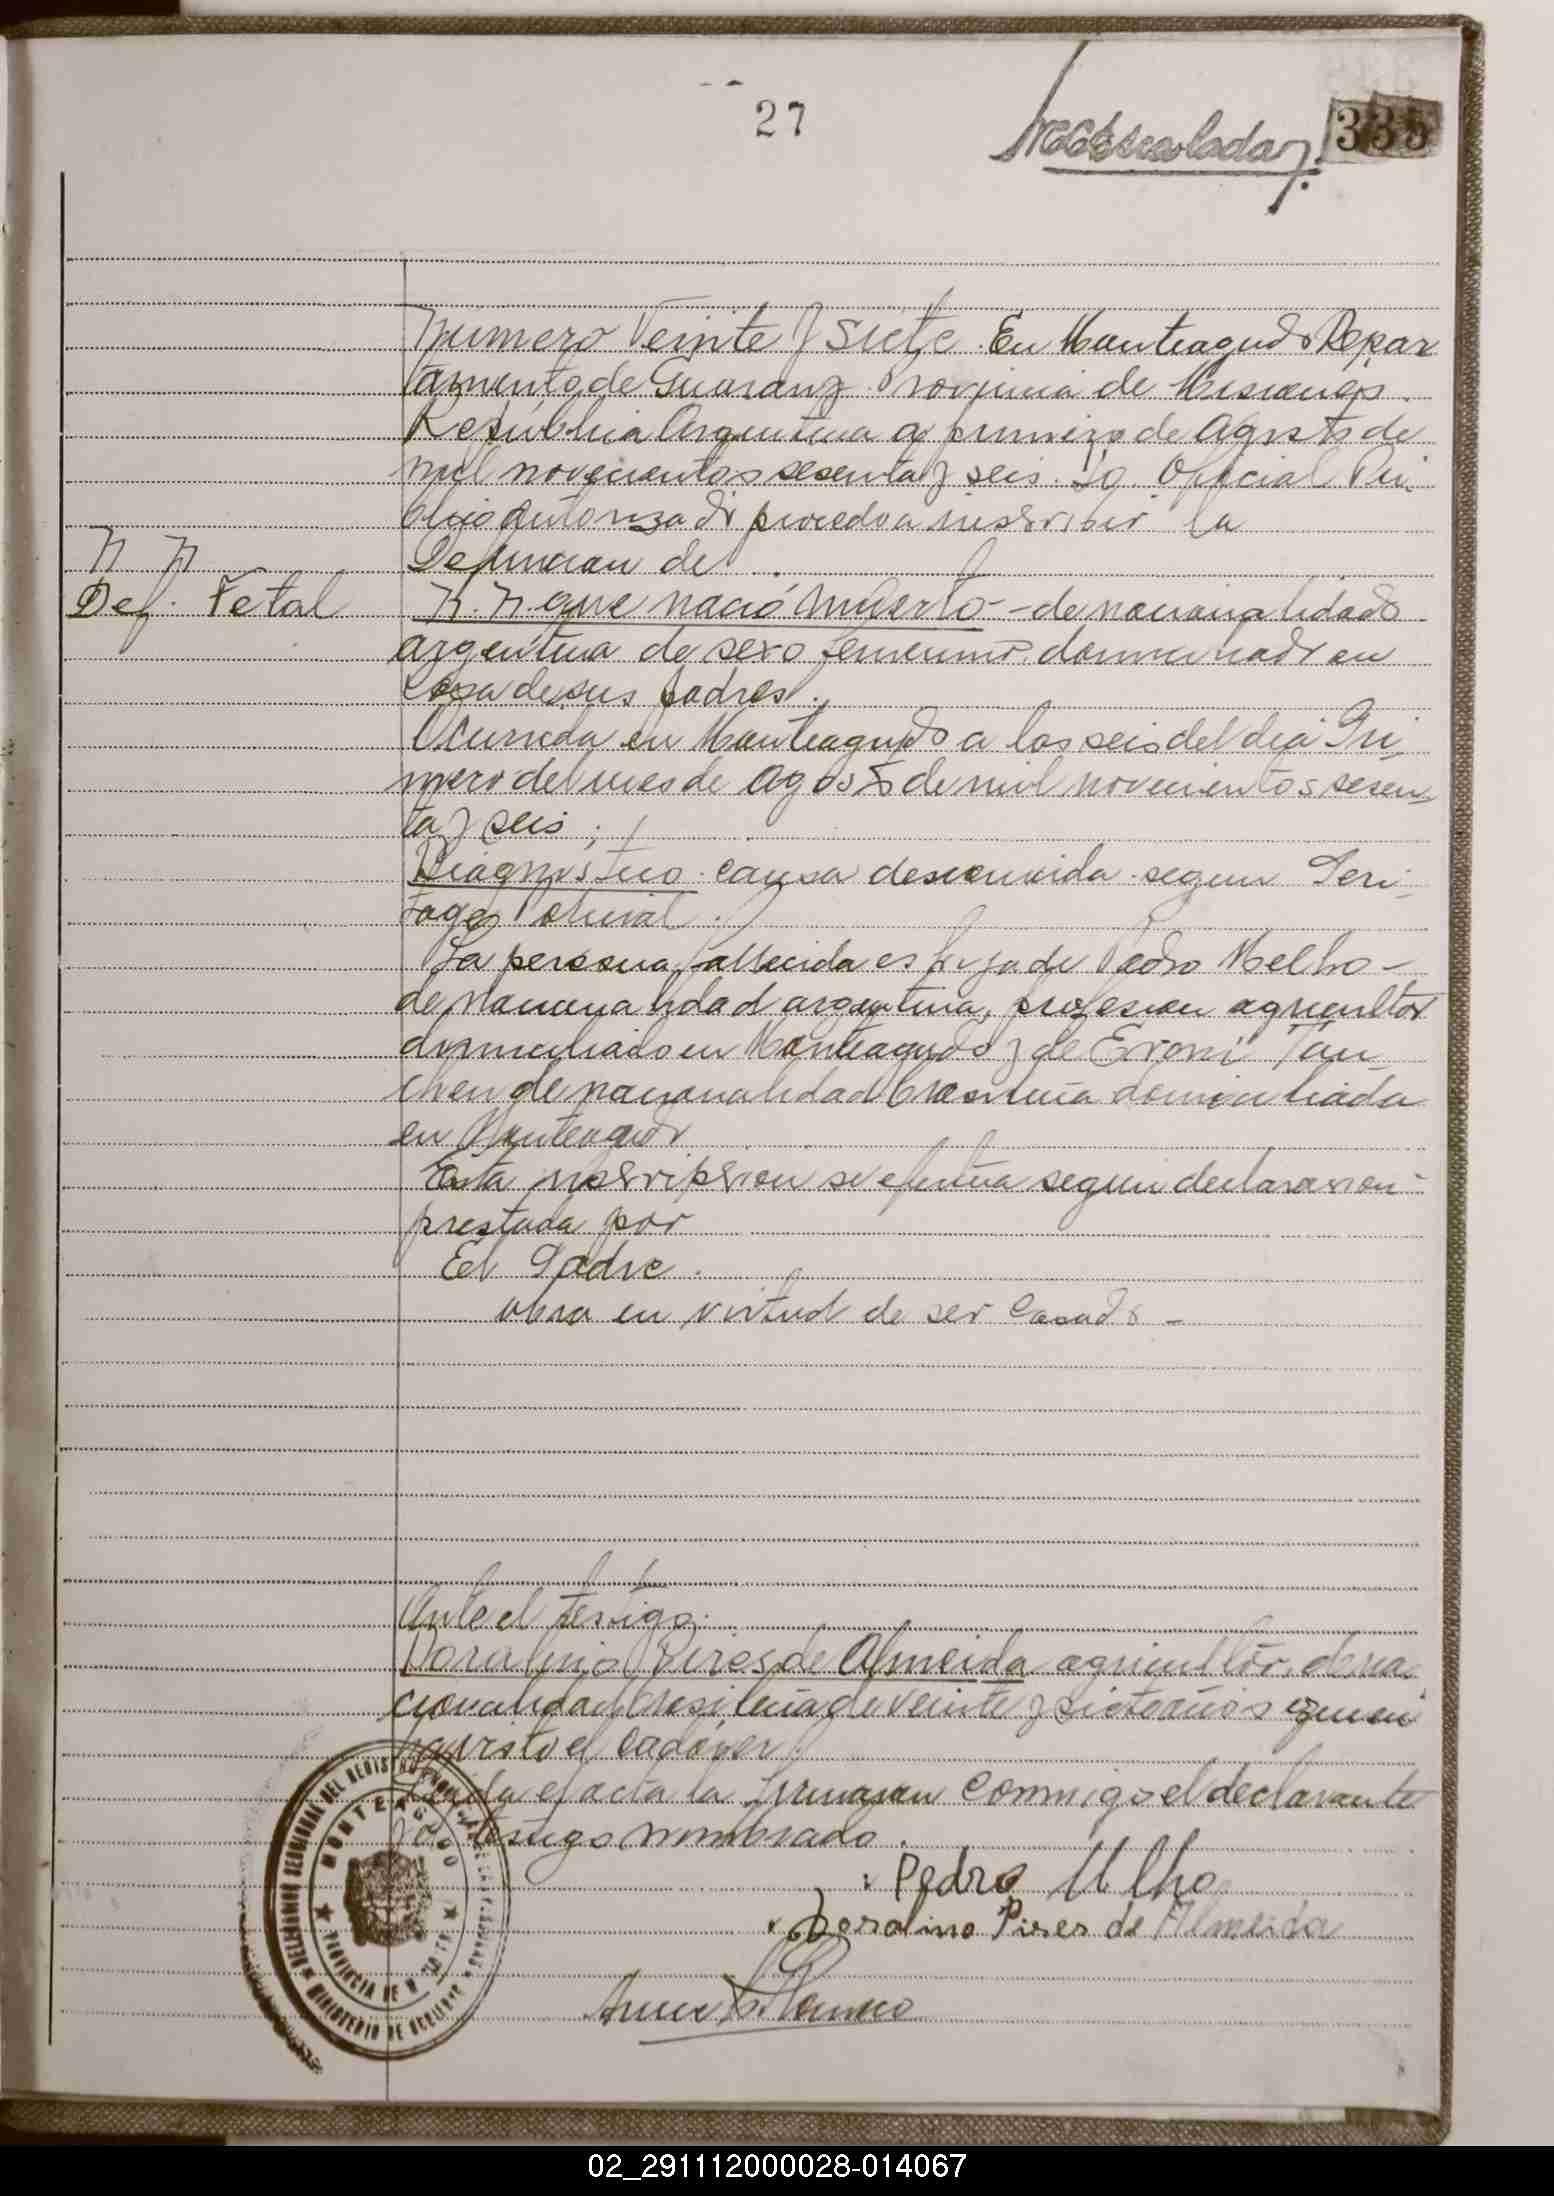 27
335
Numero Veinte y siete. En Monteagudo Depar
tamento de Guarany Provincia de Misiones.
República Argentina a primero de Agosto de
mil novecientos sesenta y seis. Yo Oficial Pú
blico autorizado procedo a inscribir la
N N
Defuncion de
Def. Fetal
N. N. que nació muerto - - de nacionalidad
argentina de sexo femenino, domiciliado en
casa de sus padres.
Ocurrida en Monteagudo a las seis del dia Pri
mero del mes de Agosto de mil novecientos sesen
ta y seis ;
Diagnostico causa desconocida segun Peri
tage Policial.
La persona fallecida es hija de Pedro Melho -
de nacionalidad argentina, profesion agricultor
domiciliado en Monteagudo y de Eroni Tan
chen de nacionalidad brasileña domiciliada
en Monteagudo
Esta inscripsion se efectua segun declarasion
prestada por
El Padre.
obra en virtud de ser Casado -
Ante el testigo:
Doralino Pires de Almeida agricultor, de na
cionalidad brasileña de veinte y siete años quien
ha visto el cadaver.
Leida el acta la firmaron Conmigo el declarante
y el testigo nombrado.
Pedro Melho
Doralino Pires de Almeida
MONTEAGUDO
PROVINCIA DE
02_291112000028-014067